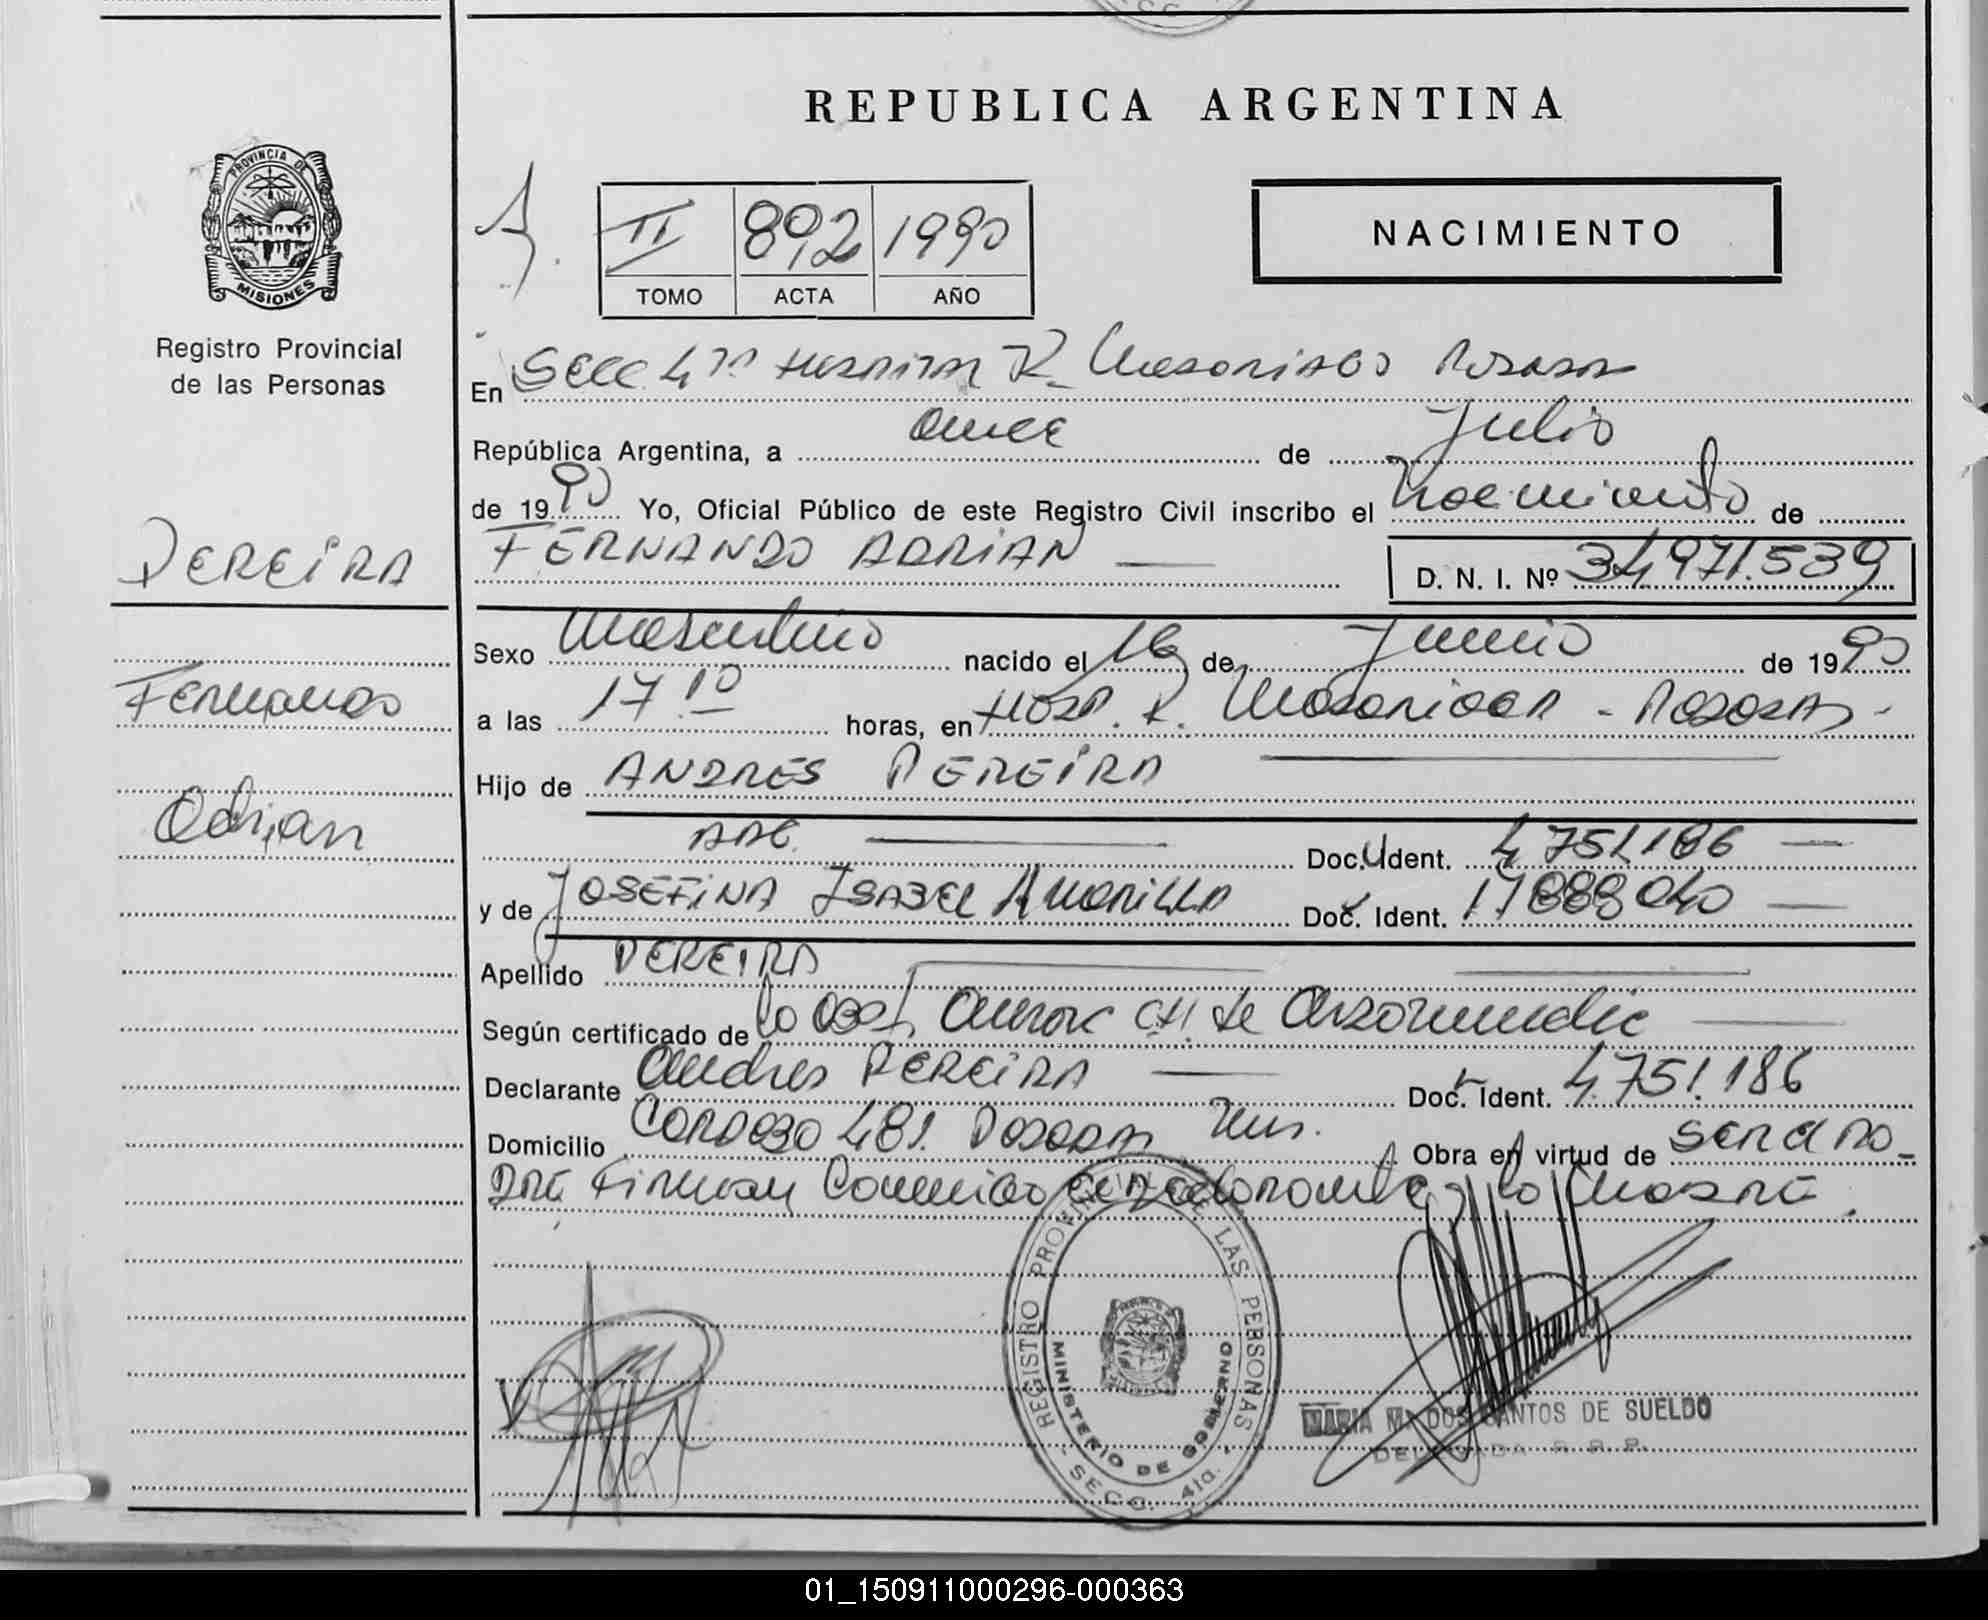 REPUBLICA ARGENTINA
PROVINCIA DE
MISIONES
Registro Provincial
de las Personas
II 892 1990
TOMO ACTA AÑO
NACIMIENTO
En Secc 4ta Hospital R. Madariaga Posadas
República Argentina, a once de Julio
de 1990 Yo, Oficial Público de este Registro Civil inscribo el nacimiento de
PEREIRA
FERNANDO ADRIAN
D. N. I. Nº 34971.539
Sexo Masculino nacido el 16 de Junio de 1990
Fernando
a las 17 10 horas, en Hosp. R. Madariaga - Posadas -
Hijo de ANDRES PEREIRA
Adrian
ARG. Doc. Ident. 4751.186
y de JOSEFINA ISABEL AMARILLA Doc. Ident. 17888040
Apellido PEREIRA
Según certificado de la Obst.
Declarante Andres PEREIRA Doc. Ident. 4.751.186
Domicilio 481. Posadas Mns. Obra en virtud de ser el pa-
dre Firman Conmigo el declarante y la Madre.
REGISTRO PROVINCIAL DE LAS PERSONAS
MINISTERIO DE GOBIERNO
- SECC. 4ta. -
MARIA M. DOS SANTOS DE SUELDO
DELEGADA R. R. P.
01_150911000296-000363